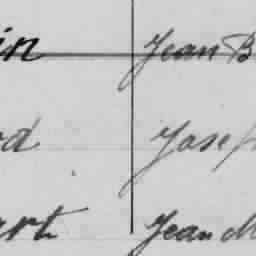 in Jean B
d Josep
art Jean M